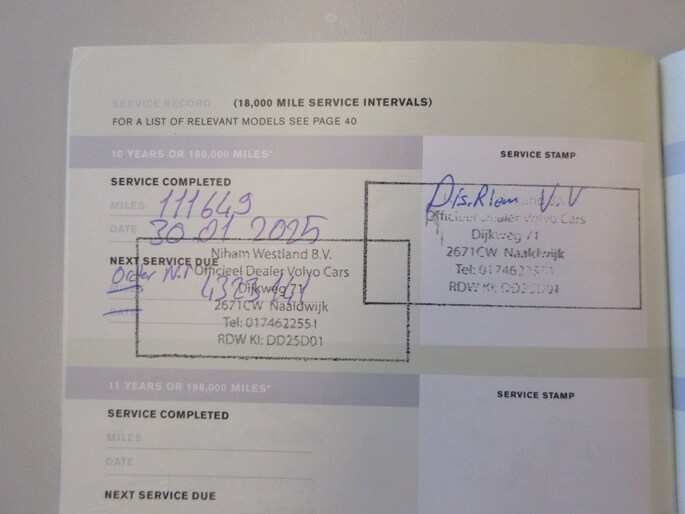 SERVICE RECORD (18,000 MILE SERVICE INTERVALS)
FOR A LIST OF RELEVANT MODELS SEE PAGE 40
10 YEARS OR 180,000 MILES*
SERVICE STAMP
SERVICE COMPLETED
MILES 111649
DATE 30.01.2025
NEXT SERVICE DUE
Order Nr 4323141
DATE
Niham Westland B.V.
Officieel Dealer Volvo Cars
Dijkweg 71
2671CW Naaldwijk
Tel: 0174622551
RDW KI: DD25D01
Dis.Riem V.V
Officieel Dealer Volvo Cars
Dijkweg 71
2671CW Naaldwijk
Tel: 0174622551
RDW KI: DD25D01
11 YEARS OR 198,000 MILES*
SERVICE STAMP
SERVICE COMPLETED
MILES
DATE
NEXT SERVICE DUE